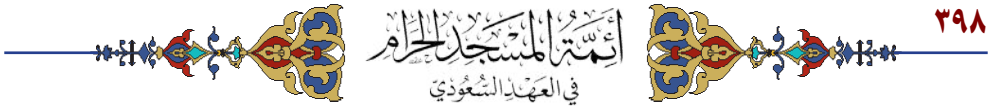 ٣٩٨
أَئِمَّةُ المَسْجِدِ الحَرَامِ
في العَهْدِ السُّعُودِيّ